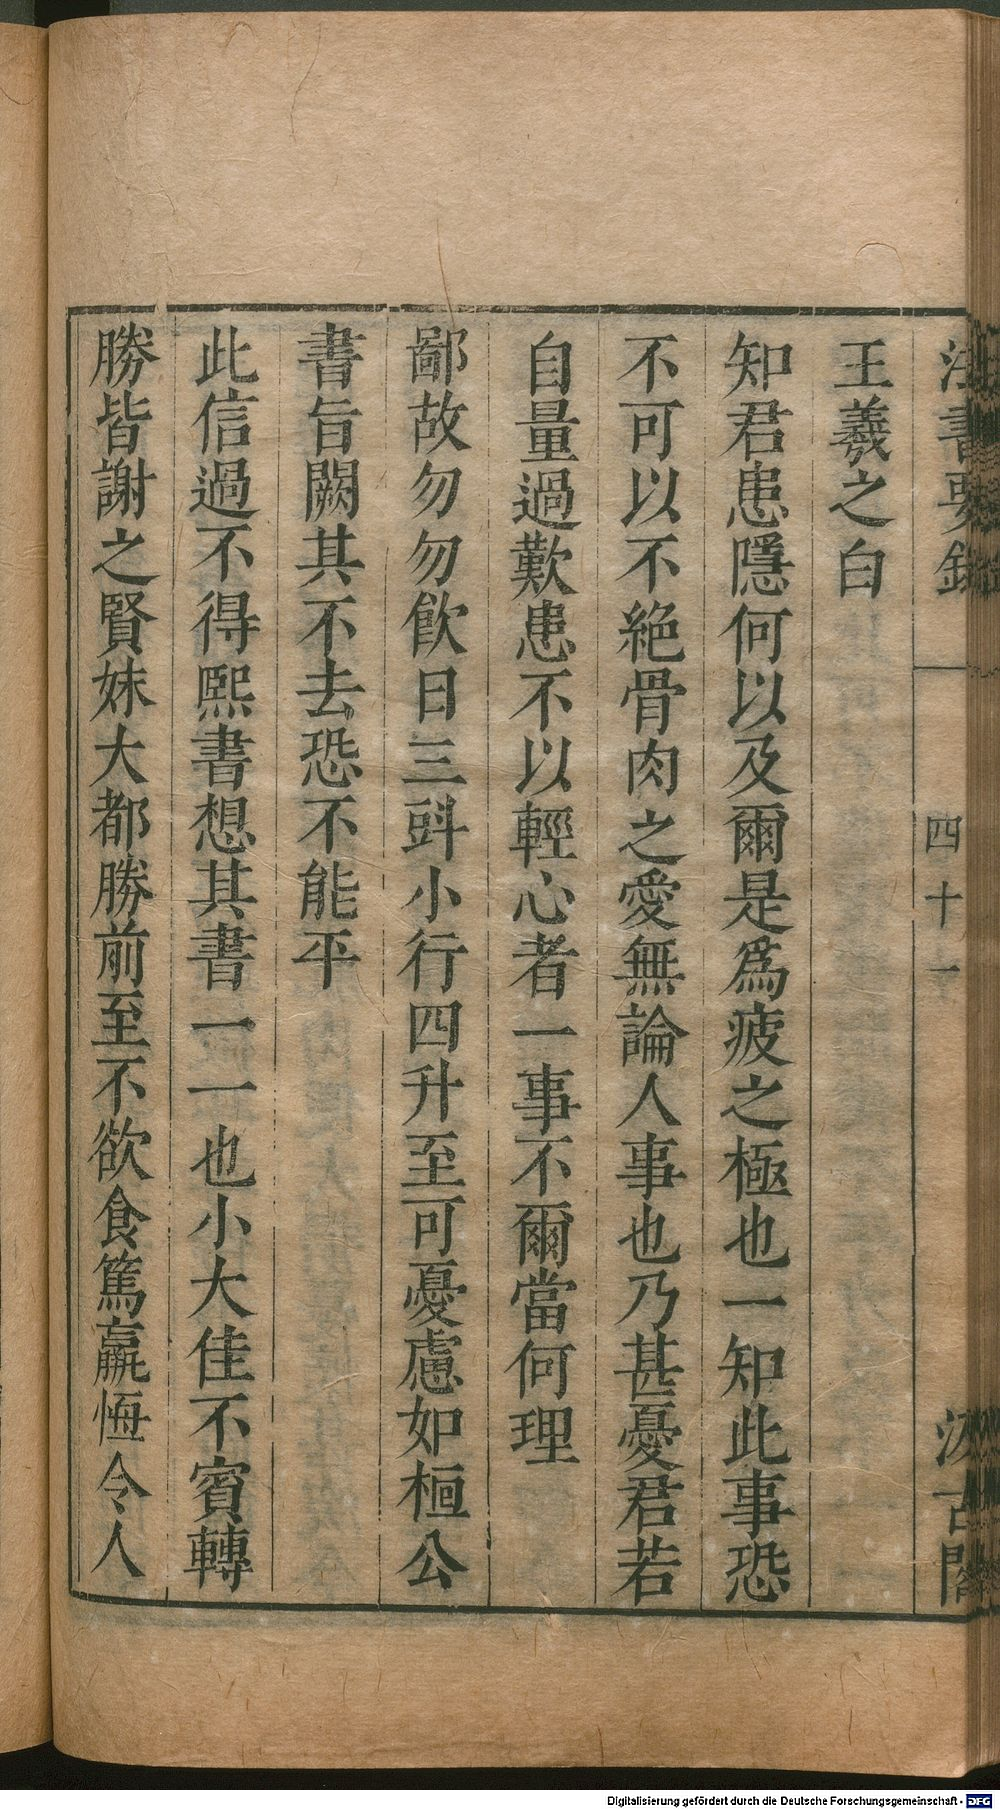 法書要錄
四十一
汲古閣
王羲之白
知君患隱何以及爾是爲疲之極也一知此事恐
不可以不絕骨肉之愛無論人事也乃甚憂君若
自量過歎患不以輕心者一事不爾當何理
鄙故勿勿飲日三㪷小行四升至可憂慮如桓公
書旨闕其不去恐不能平
此信過不得熙書想其書一一也小大佳不賓轉
勝皆謝之賢妹大都勝前至不欲食篤羸恆令人
Digitalisierung gefördert durch die Deutsche Forschungsgemeinschaft - DFG